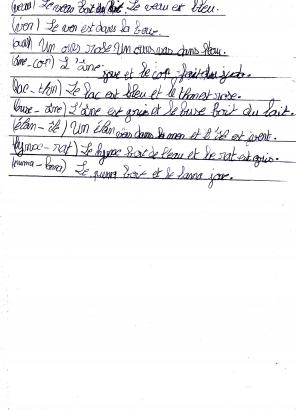 (veau) Le veau boit du lait Le veau est bleu.
(ver) Le ver est dans la
(ours) Un ours rose Un ours dans l'eau.
(âne-coq) L'âne
joue et le coq fait du judo.
(lac-thon) Le lac est bleu et le thon est rose.
(buse-âne) L'âne est gris et la buse boit du lait.
(élan-île) Un élan dans la mer et l'île est
(hymac-rat) Le hymac boit de l'eau et le rat est gris.
(puma-lama) Le puma boit et le lama joue.